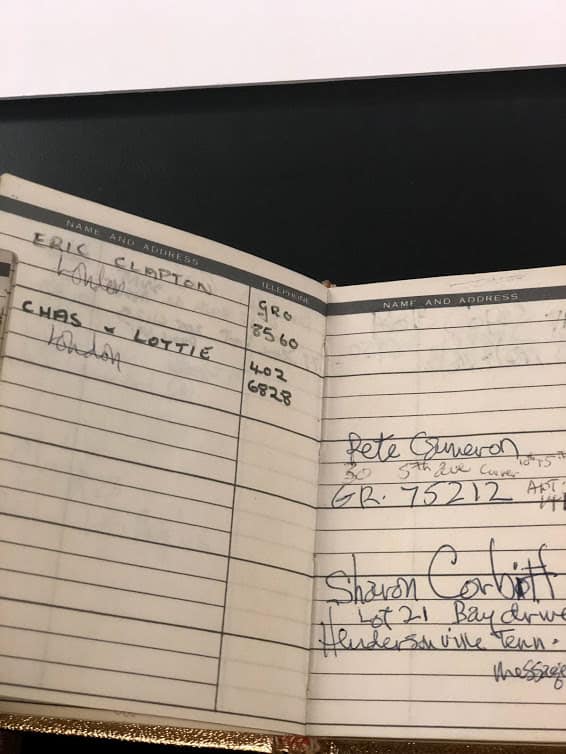 NAME AND ADDRESS
TELEPHONE
ERIC CLAPTON
London
GRO
8560
CHAS & LOTTIE
London
402
6828
NAME AND ADDRESS
Pete Cameron
30 5th Ave
GR. 75212 APT.
Sharon Corbitt
Lot 21 Bay drive
Hendersonville Tenn.
message